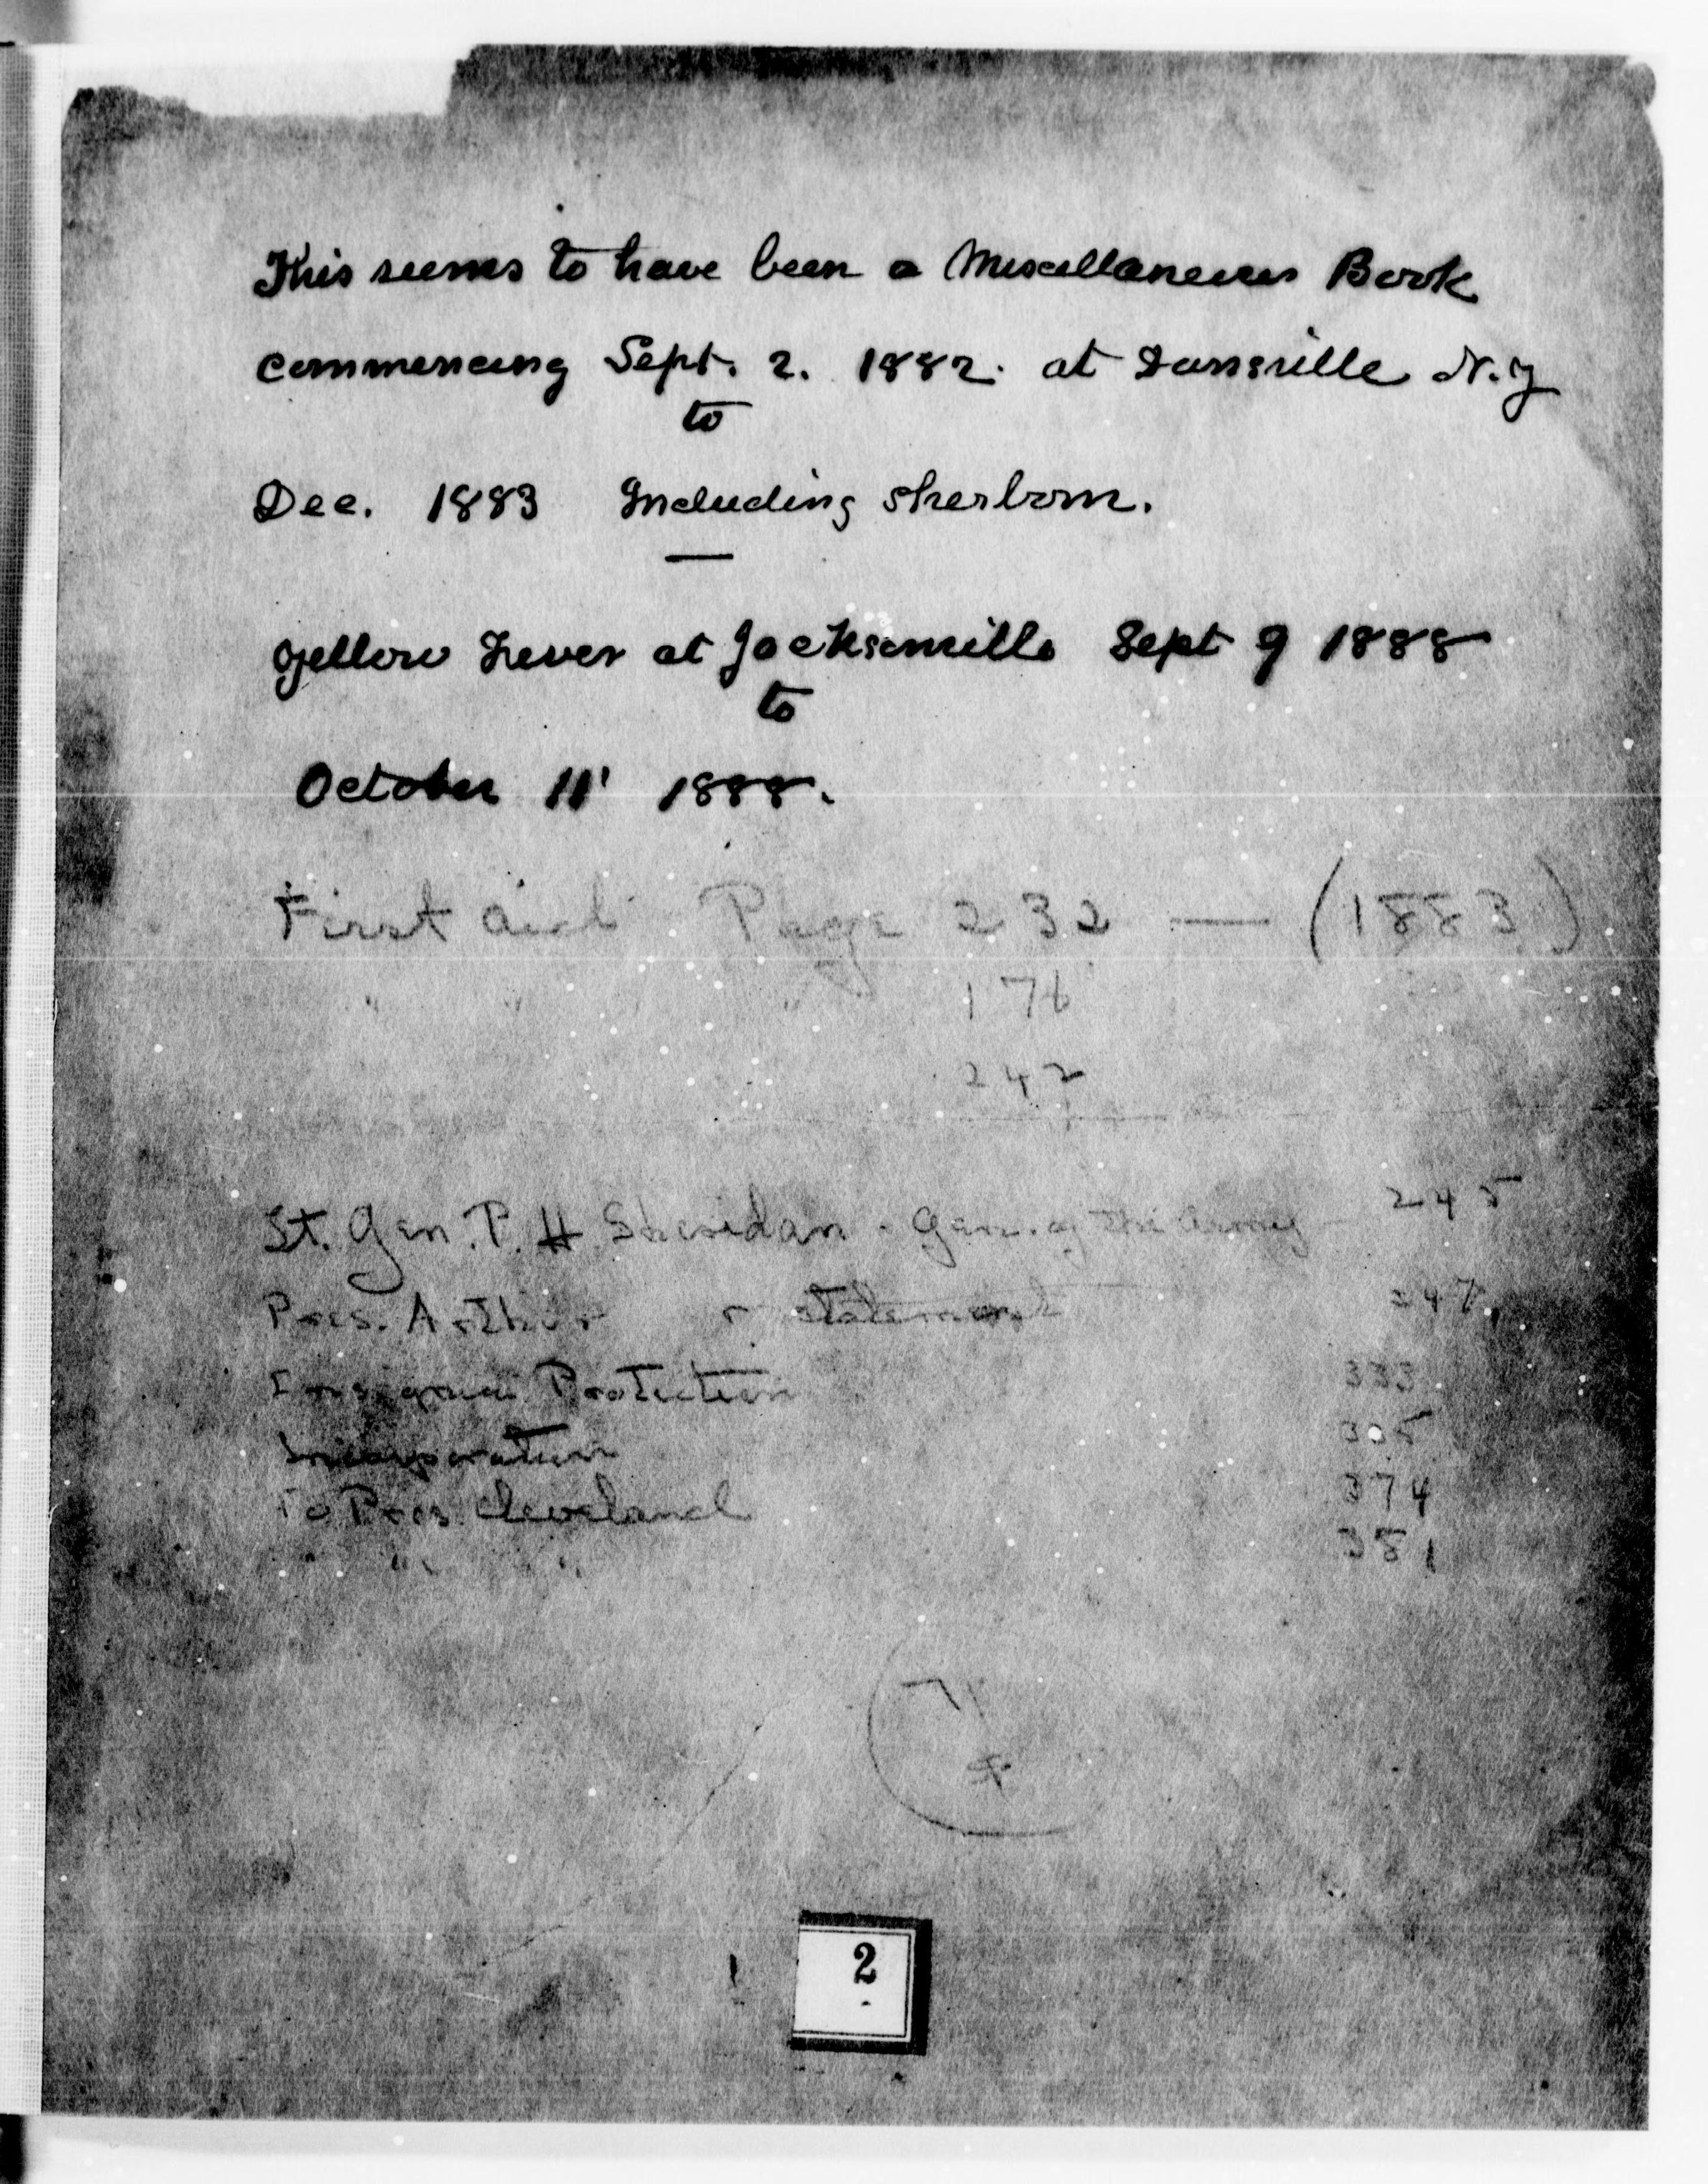 This seems to have been a Miscellaneous Book
commencing Sept. 2. 1882. at Dansville N.Y
to
Dec. 1883 Including Sherborn.
Yellow Fever at Jacksonville Sept 9 1888
to
October 11' 1888.
First aid Page 232 — (1883)
" " " 176
242
Lt. Gen. P. H. Sheridan - Gen. of the Army 245
Pres. Arthur statement 247
Insignia Protection 333
Incorporation 305
To Pres. Cleveland 374
" " 381
71
2